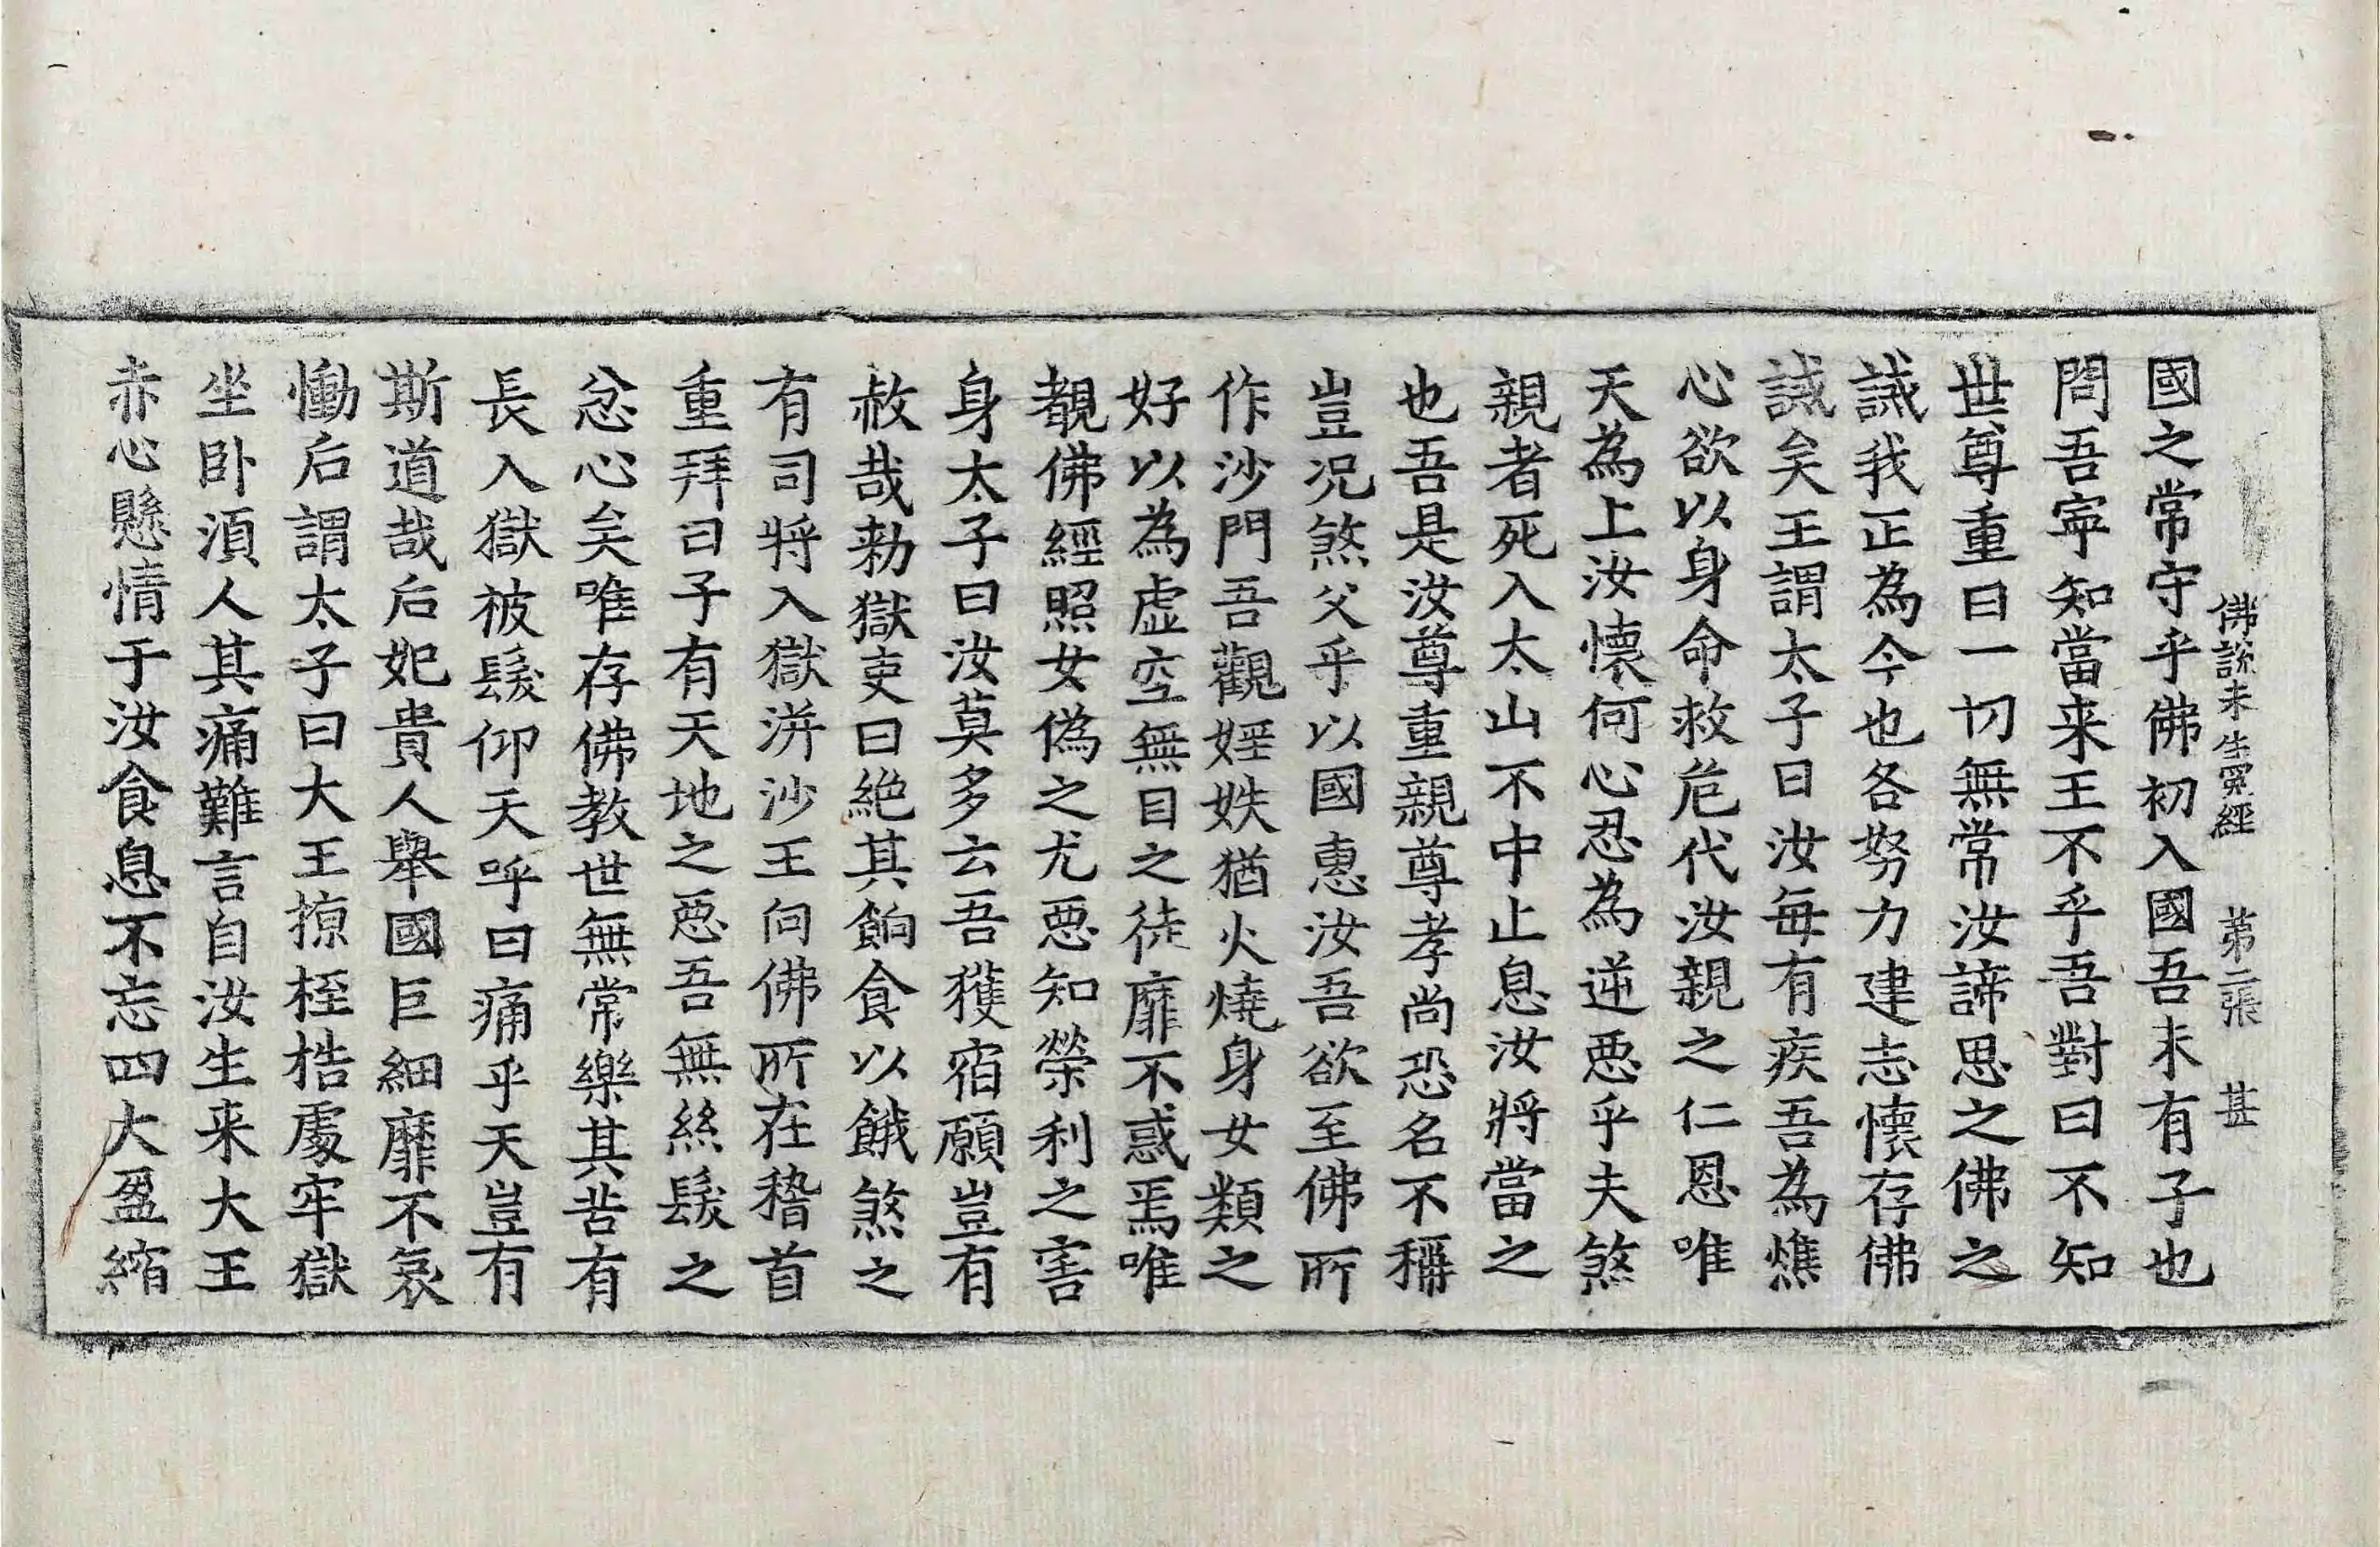 佛說未生冤經 第二張 甚
國之常守乎佛初入國吾未有子也
問吾寧知當来王不乎吾對曰不知
世尊重曰一切無常汝諦思之佛之
誡我正為今也各努力建志懷存佛
誡矣王謂太子曰汝每有疾吾為燋
心欲以身命救危代汝親之仁恩唯
天為上汝懷何心忍為逆惡乎夫煞
親者死入太山不中止息汝將當之
也吾是汝尊重親尊孝尚恐名不稱
豈况煞父乎以國惠汝吾欲至佛所
作沙門吾觀婬妷猶火燒身女類之
好以為虛空無目之徒靡不惑焉唯
覩佛經照女偽之尤惡知榮利之害
身太子曰汝莫多云吾獲宿願豈有
赦哉勑獄吏曰絶其餉食以餓煞之
有司將入獄洴沙王向佛所在稽首
重拜曰子有天地之惡吾無絲髮之
忿心矣唯存佛教世無常樂其苦有
長入獄被髮仰天呼曰痛乎天豈有
斯道哉后妃貴人舉國巨細靡不哀
慟后謂太子曰大王掠桎梏處牢獄
坐卧湏人其痛難言自汝生来大王
赤心懸情于汝食息不忘四大盈縮